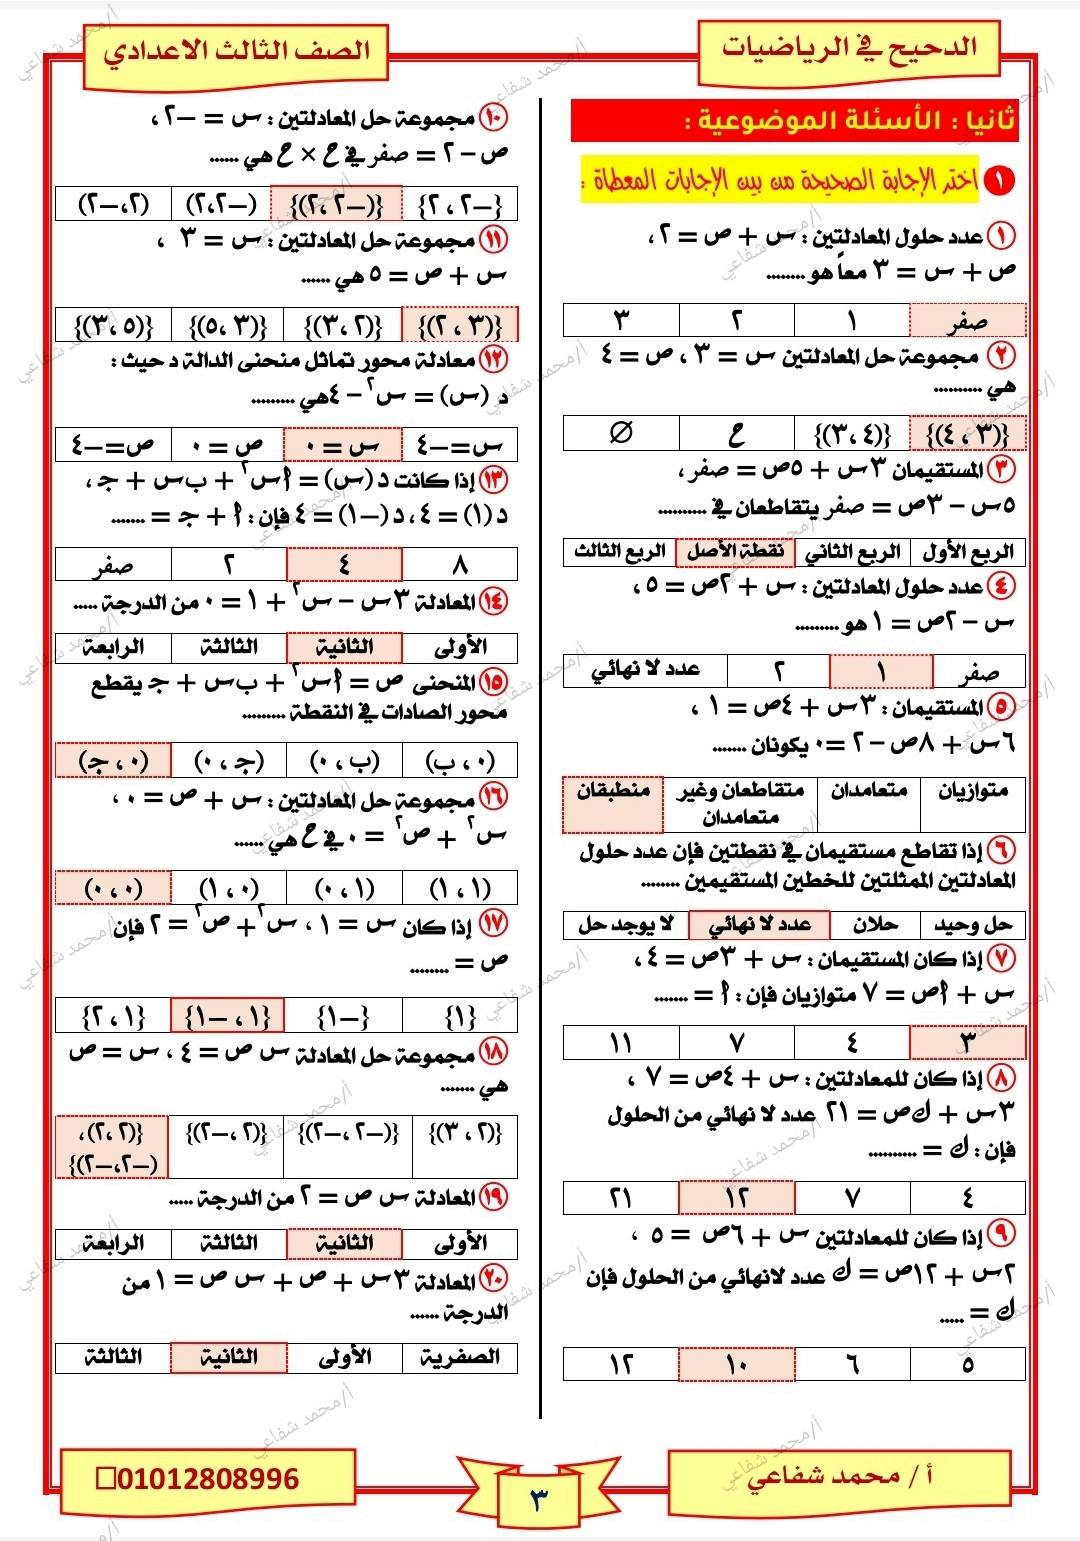 الدحيح في الرياضيات
الصف الثالث الاعدادي
ثانيا : الأسئلة الموضوعية :
١ اختر الإجابة الصحيحة من بين الإجابات المعطاة :
١ عدد حلول المعادلتين : س + ص = ٢ ،
ص + س = ٣ معاً هو ........
صفر ١ ٢ ٣
٢ مجموعة حل المعادلتين س = ٣ ، ص = ٤
هي ..........
{(٣ ، ٤)} {(٤ ،٣)} ح ∅
٣ المستقيمان ٣س + ٥ص = صفر ،
٥س – ٣ص = صفر يتقاطعان في ..........
الربع الأول الربع الثاني نقطة الأصل الربع الثالث
٤ عدد حلول المعادلتين : س + ٢ص = ٥ ،
س – ٢ص = ١ هو .........
صفر ١ ٢ عدد لا نهائي
٥ المستقيمان : ٣س + ٤ص = ١ ،
٦س + ٨ص – ٢ =٠ يكونان .......
متوازيان متعامدان متقاطعان وغير متعامدان منطبقان
٦ إذا تقاطع مستقيمان في نقطتين فإن عدد حلول
المعادلتين الممثلتين للخطين المستقيمين ........
حل وحيد حلان عدد لا نهائي لا يوجد حل
٧ إذا كان المستقيمان : س + ٣ص = ٤ ،
س + أص = ٧ متوازيان فإن : أ = .......
٣ ٤ ٧ ١١
٨ إذا كان للمعادلتين : س + ٤ص = ٧ ،
٣س + ك ص = ٢١ عدد لا نهائي من الحلول
فإن : ك = ..........
٤ ٧ ١٢ ٢١
٩ إذا كان للمعادلتين س + ٦ص = ٥ ،
٢س + ١٢ص = ك عدد لانهائي من الحلول فإن
ك = .....
٥ ٦ ١٠ ١٢
١٠ مجموعة حل المعادلتين : س = –٢ ،
ص – ٢ = صفر في ح × ح هي ......
{–٢ ، ٢} {(–٢ ،٢)} (–٢،٢) (٢،–٢)
١١ مجموعة حل المعادلتين : س = ٣ ،
س + ص = ٥ هي ......
{(٣ ، ٢)} {(٢ ،٣)} {(٣ ،٥)} {(٥ ،٣)}
١٢ معادلة محور تماثل منحنى الدالة د حيث :
د (س) = س٢ – ٤ هي .........
س=–٤ س = ٠ ص = ٠ ص=–٤
١٣ إذا كانت د (س) = أس٢ + ب س + جـ ،
د (١) = ٤ ، د (–١) = ٤ فإن : أ + جـ = .......
٨ ٤ ٢ صفر
١٤ المعادلة ٣س – س٢ + ١ = ٠ من الدرجة .....
الأولى الثانية الثالثة الرابعة
١٥ المنحنى ص = أس٢ + ب س + جـ يقطع
محور الصادات في النقطة .........
(٠ ، ب) (ب ، ٠) (جـ ، ٠) (٠ ، جـ)
١٦ مجموعة حل المعادلتين : س + ص = ٠ ،
س٢ + ص٢ = ٠ في ح هي ......
(١ ، ١) (١ ، ٠) (٠ ، ١) (٠ ، ٠)
١٧ إذا كان س = ١ ، س٢ + ص٢ = ٢ فإن
ص = ........
{١} {–١} {١ ، –١} {١ ، ٢}
١٨ مجموعة حل المعادلة س ص = ٤ ، س = ص
هي .......
{(٢ ، ٣)} {(–٢ ،–٢)} {(٢ ،–٢)} {(٢ ،٢) ،
(–٢،–٢)}
١٩ المعادلة س ص = ٢ من الدرجة .....
الأولى الثانية الثالثة الرابعة
٢٠ المعادلة ٣س + ص + س ص = ١ من
الدرجة ......
الصفرية الأولى الثانية الثالثة
أ / محمد شفاعي
٣
01012808996
أ/محمد شفاعي